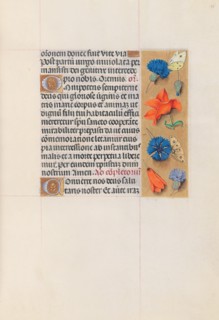 dolorem donec fuit vite via
Post partū uirgo inuiolata per
mansisti dei genitrix intercede
pro nobis. Oremus. or̄.
Omnipotens sempiterne
deus qui gloriose uirginis et ma
tris marie corpus et animā ut
dignū filii tui habitaculū effici
mereretur spū sancto cooperāte
mirabiliter preparasti da ut cuius
cōmemoratione letamur eius
pia intercessione ab instantibus
malis et a morte perpetua libere
mur per eundem xpistum dnm
nostrum Amen. Ad completoriū
Conuerte nos deus salu
taris noster Et auerte iram